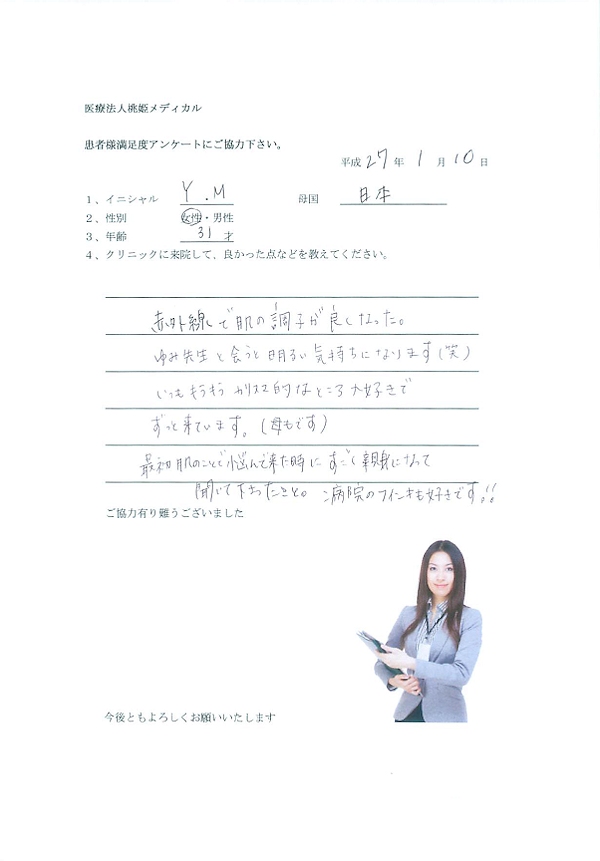 医療法人桃姫メディカル
患者様満足度アンケートにご協力下さい。
平成 27 年 1 月 10 日
1、イニシャル Y.M 母国 日本
2、性別 女性・男性
3、年齢 31才
4、クリニックに来院して、良かった点などを教えてください。
赤外線で肌の調子が良くなった。
ゆみ先生と会うと明るい気持ちになります(笑)
いつもキラキラ カリスマ的なところ大好きで
ずっと来ています。(母もです)
最初肌のことで悩んで来た時にすごく親身になって
聞いて下さったこと。病院のフインキも好きです!!
ご協力有り難うございました
今後ともよろしくお願いいたします